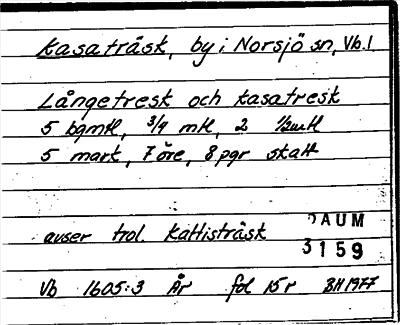 Kasaträsk, by i Norsjö sn, Vb.l
Långetresk och Kasatresk
5 bgmtl, 3/4 mtl, 2 1/2mtl
5 mark, 7 öre, 8 pgr skatt
DAUM
avser trol. Kattisträsk
3159
Vb 1605:3 År fol 15r BH 1977